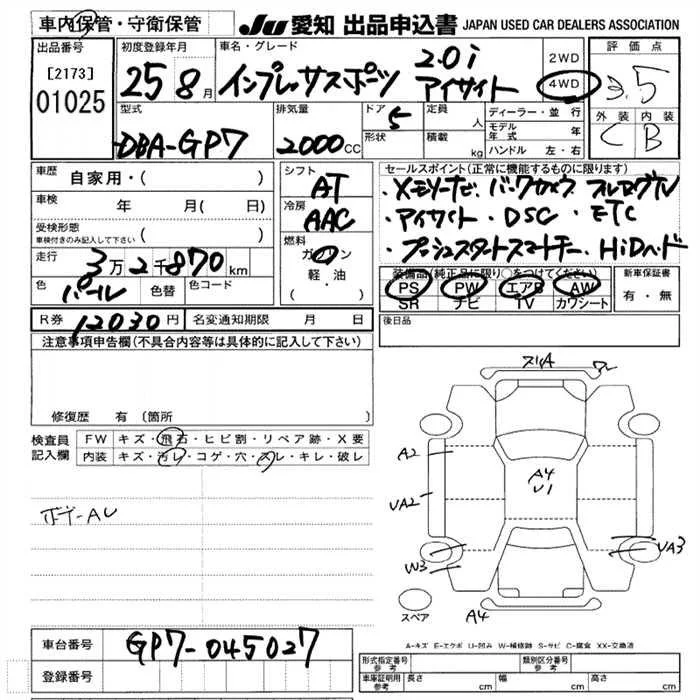 車内保管・守衛保管
JU 愛知 出品申込書 JAPAN USED CAR DEALERS ASSOCIATION
出品番号
[2173]
01025
初度登録年月
25 8月
車名・グレード
インプレッサスポーツ
2.0i
アイサイト
2WD
4WD
評価点
3.5
外装 内装
C B
型式
DBA-GP7
排気量
2000CC
ドア 5
形状
定員 人
積載 kg
ディーラー・並行
モデル年式 年
ハンドル 左・右
車歴 自家用・( )
車検 年 月( 日)
受検形態
車検付きのみ記入して下さい ( )
走行 3万2千870km
色 パール 色替 色コード
シフト
AT
冷房
AAC
燃料
ガソリン
軽・油
( ・ )
セールスポイント(正常に機能するものに限ります)
・メモリーナビ バックカメラ フルセグTV
・アイサイト ・DSC ・ETC
・プッシュスタートスマートキー HiDヘッド
装備品(純正品に限り○をつけてください)
PS PW エアB AW
SR ナビ TV カワシート
新車保証書
有・無
R券 12030円 名変通知期限 月 日
後日品
注意事項申告欄(不具合内容等は具体的に記入して下さい)
修復歴 有 〔箇所 〕
検査員
記入欄
FW キズ・飛石・ヒビ割・リペア跡・X要
内装 キズ・汚レ・コゲ・穴・スレ・キレ・破レ
スリA
A2
A4
U1
UA2
W3
UA3
A4
スペア
A-キズ E-エクボ U-凹み W-補修跡 S-サビ C-腐食 XX-交換済
車台番号 GP7-045027
登録番号
形式指定番号
参考
類別区分番号
参考
車庫証明用
参考
長さ cm 幅 cm 高さ cm